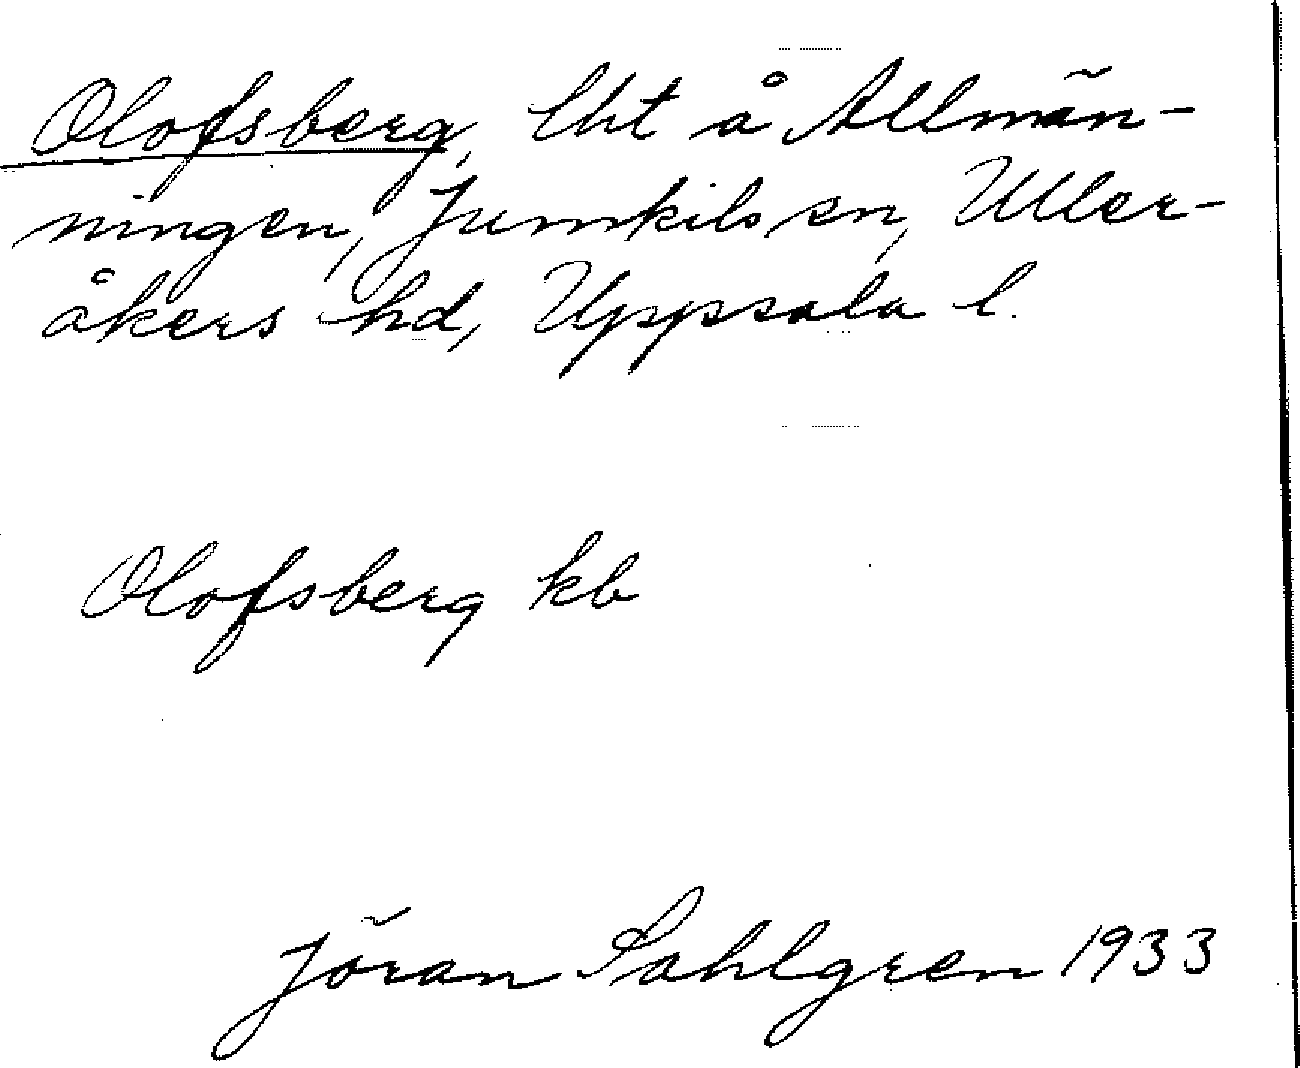 Olofsberg, lht å Allmän-
ningen, Jumkils sn, Uller-
åkers hd, Uppsala l.
Olofsberg kb
Jöran Sahlgren 1933